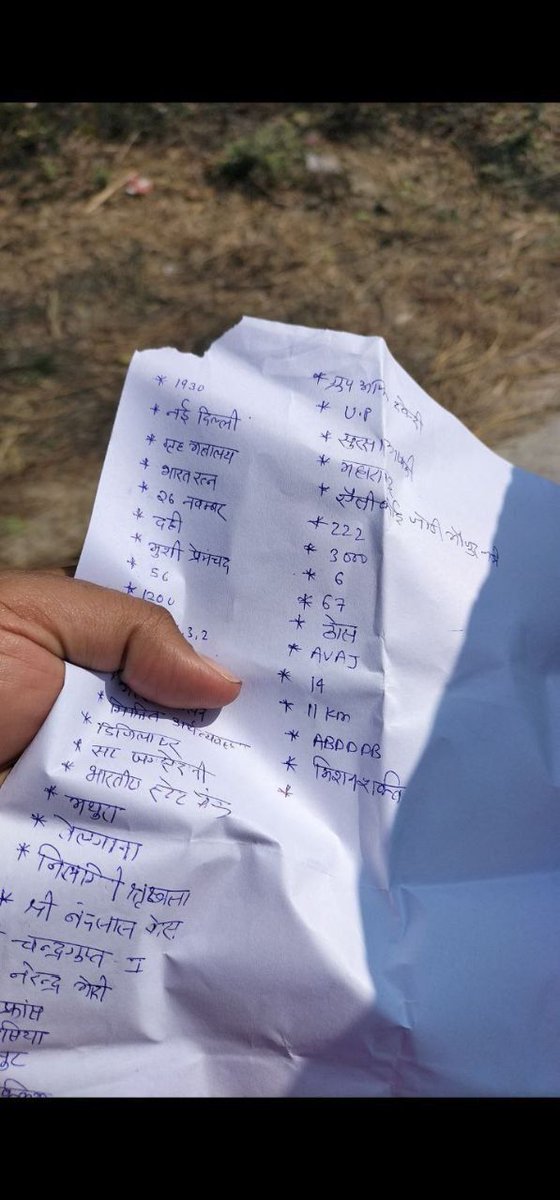 * 1930
* नई दिल्ली
* गृह मंत्रालय
* भारत रत्न
* २६ नवम्बर
* दही
* मुंशी प्रेमचंद
* 56
* 1200
,3,2
* मिश्रित अर्थव्यवस्था
* डिजिलॉकर
* सर
* भारतीय स्टेट बैंक
* मथुरा
* तेलंगाना
* निलगिरी श्रृंखला
* श्री नंदलाल बोस
चन्द्रगुप्त I
नरेन्द्र मोदी
फ्रांस
* U.P
* सुरसा
* महाराष्ट्र
* 222
* 3000
* 6
* 67
* ठोस
* AVAJ
* 14
* 11 Km
* ABDDDB
* मिशन शक्ति
*